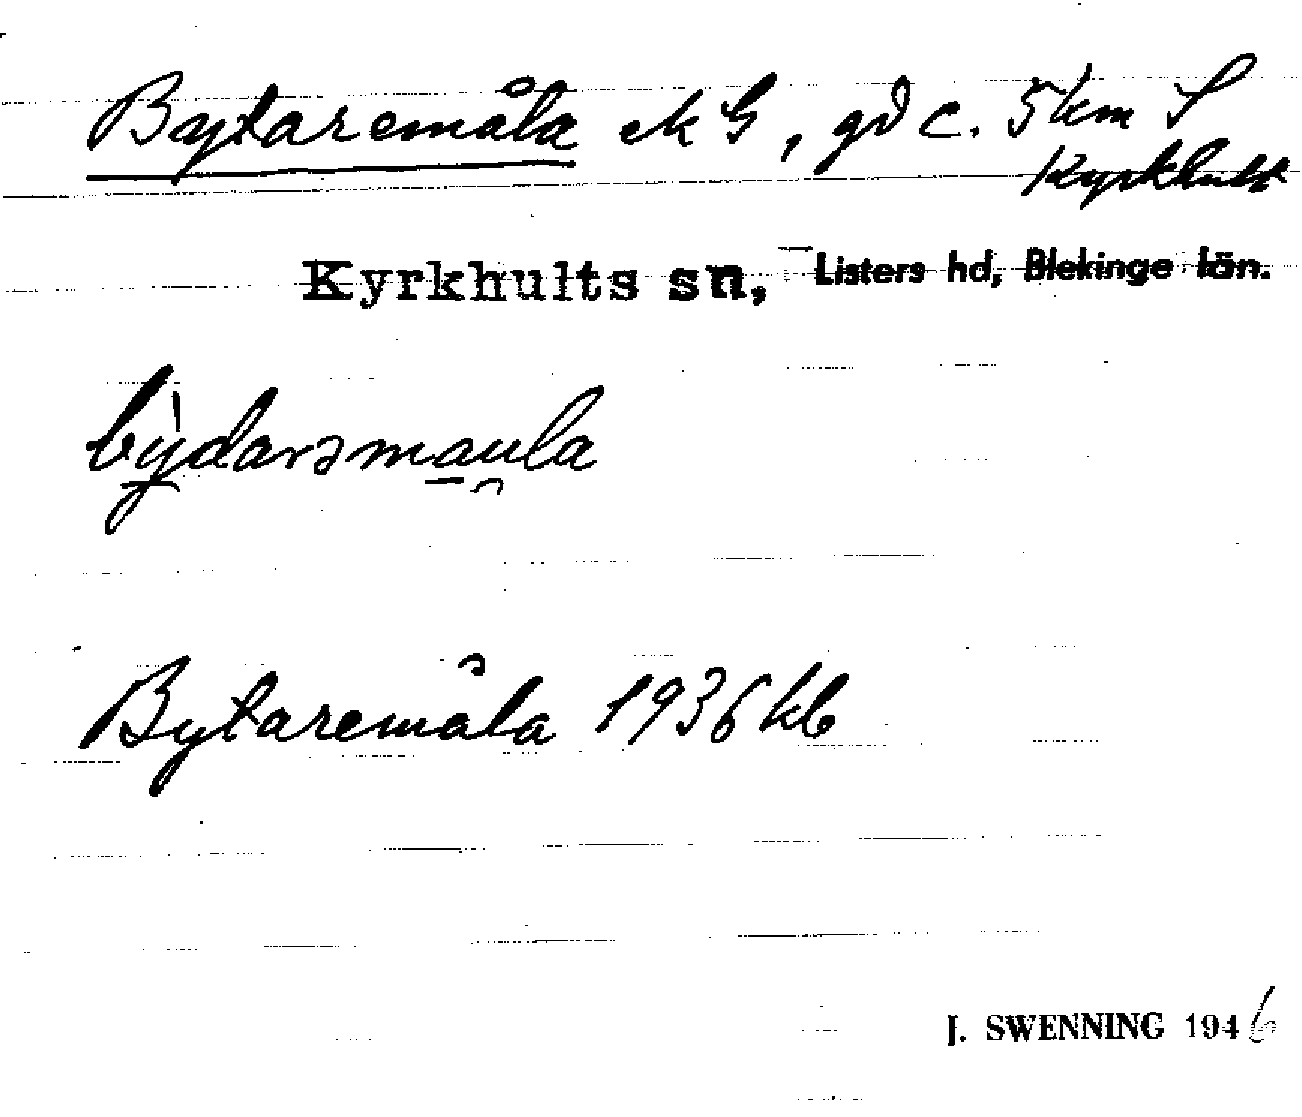 Bytaremåla ek G, gd c. 5 km S
Kyrkhult
Kyrkhults sn, Listers hd, Blekinge län.
bỳdarəmau̯la
Bytaremåla 1936 kb
J. SWENNING 1946